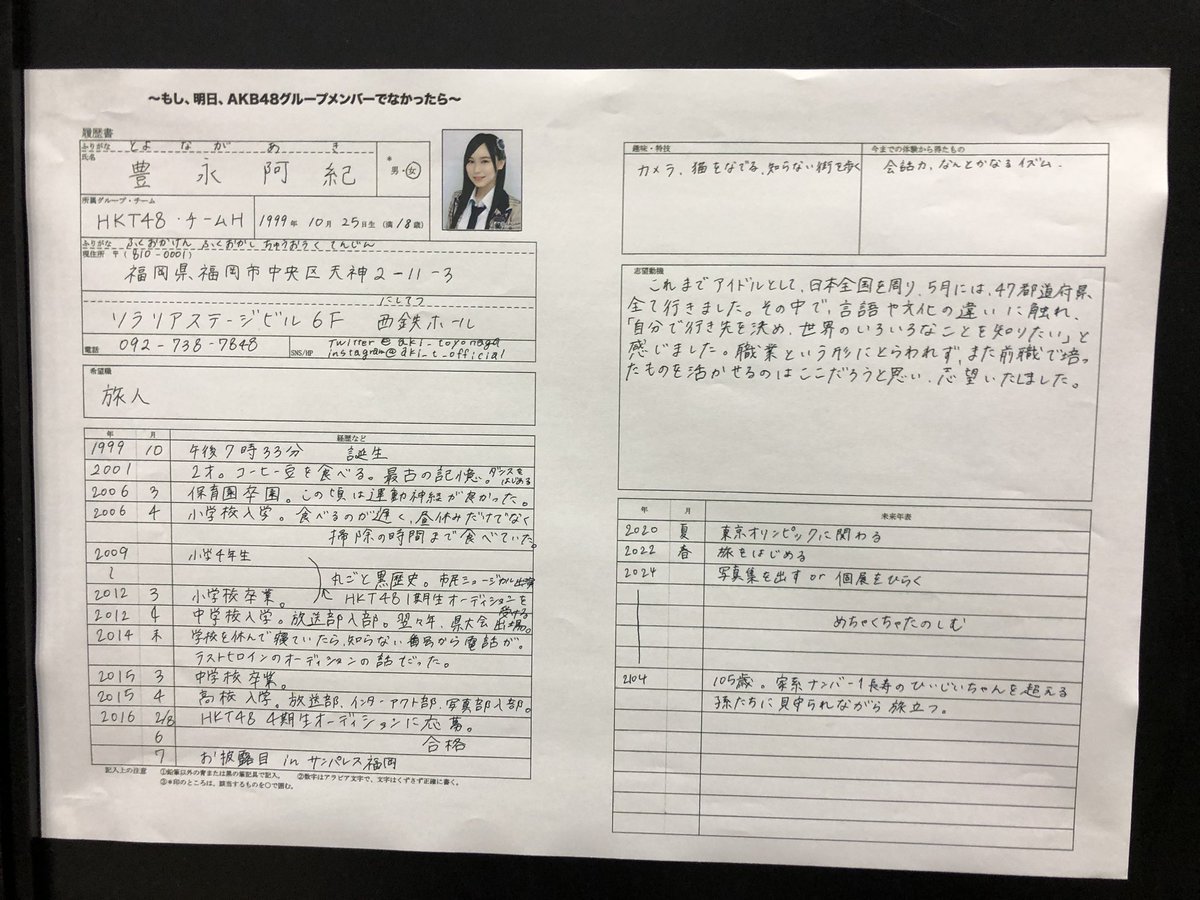 ～もし、明日、AKB48グループメンバーでなかったら～
履歴書
ふりがな とよ なが あ き
氏名 豊永阿紀
*
男・女
所属グループ・チーム
HKT48・チームH
1999年 10月 25日生 (満 18歳)
ふりがな ふくおかけん ふくおかし ちゅうおうく てんじん
現住所 〒(810-0001)
福岡県福岡市中央区天神2-11-3
にしてつ
ソラリアステージビル6F 西鉄ホール
電話 092-738-7848
SNS/HP Twitter@aki_toyonaga
instagram@aki_t_official
希望職
旅人
年 月 経歴など
1999 10 午後7時33分 誕生
2001 2才。コーヒー豆を食べる。最古の記憶。ダンスをはじめる
2006 3 保育園卒園。この頃は運動神経が良かった。
2006 4 小学校入学。食べるのが遅く、昼休みだけでなく
掃除の時間まで食べていた。
2009 小学4年生
〜 丸ごと黒歴史。市民ミュージカル出演
2012 3 小学校卒業。 HKT48 1期生オーディションを受ける
2012 4 中学校入学。放送部入部。翌々年、県大会出場。
2014 冬 学校を休んで寝ていたら、知らない番号から電話が。
ラストヒロインのオーディションの話だった。
2015 3 中学校卒業。
2015 4 高校入学。放送部、インターアクト部、写真部入部。
2016 2/8 HKT48 4期生オーディションに応募。
6 合格
7 お披露目 in サンパレス福岡
記入上の注意 ①鉛筆以外の青または黒の筆記具で記入。 ②数字はアラビア文字で、文字はくずさず正確に書く。
③＊印のところは、該当するものを○で囲む。
趣味・特技
カメラ、猫をなでる、知らない街を歩く
今までの体験から得たもの
会話力、なんとかなるイズム.
志望動機
これまでアイドルとして、日本全国を周り、5月には、47都道府県、
全て行きました。その中で、言語や文化の違いに触れ、
「自分で行き先を決め、世界のいろいろなことを知りたい」と
感じました。職業という形にとらわれず、また前職で培っ
たものを活かせるのはここだろうと思い、志望いたしました。
年 月 未来年表
2020 夏 東京オリンピックに関わる
2022 春 旅をはじめる
2024 写真集を出す or 個展をひらく
めちゃくちゃたのしむ
2104 105歳。家系ナンバー1長寿のひいじいちゃんを超える
孫たちに見守られながら旅立つ。